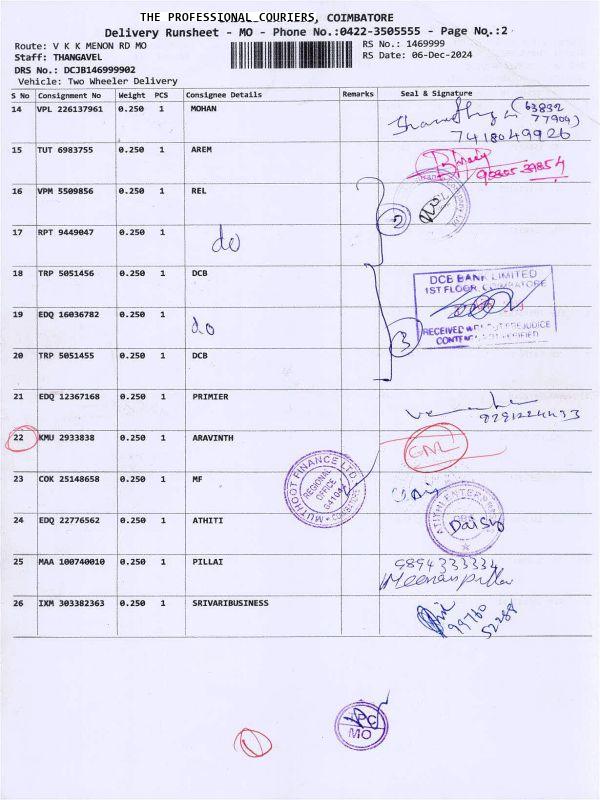 THE PROFESSIONAL COURIERS, COIMBATORE
Delivery Runsheet - MO - Phone No.:0422-3505555 - Page No.:2
Route: V K K MENON RD MO
RS No.: 1469999
Staff: THANGAVEL
RS Date: 06-Dec-2024
DRS No.: DCJB146999902
Vehicle: Two Wheeler Delivery
S No Consignment No Weight PCS Consignee Details Remarks Seal & Signature
14 VPL 226137961 0.250 1 MOHAN
(63832
77904)
7418049926
15 TUT 6983755 0.250 1 AREM
16 VPM 5509856 0.250 1 REL
2
17 RPT 9449047 0.250 1 do
18 TRP 5051456 0.250 1 DCB
DCB BANK LIMITED
1ST FLOOR, COIMBATORE
19 EDQ 16036782 0.250 1 do
RECEIVED WITHOUT PREJUDICE
CONTENTS NOT VERIFIED
3
20 TRP 5051455 0.250 1 DCB
21 EDQ 12367168 0.250 1 PRIMIER
22 KMU 2933838 0.250 1 ARAVINTH
MUTHOOT FINANCE LTD.
REGIONAL
OFFICE
COIMBATORE
23 COK 25148658 0.250 1 MF
24 EDQ 22776562 0.250 1 ATHITI
Daisy
25 MAA 100740010 0.250 1 PILLAI
9894333334
Meenaspillai
26 IXM 303382363 0.250 1 SRIVARIBUSINESS
99760
52288
MO
1